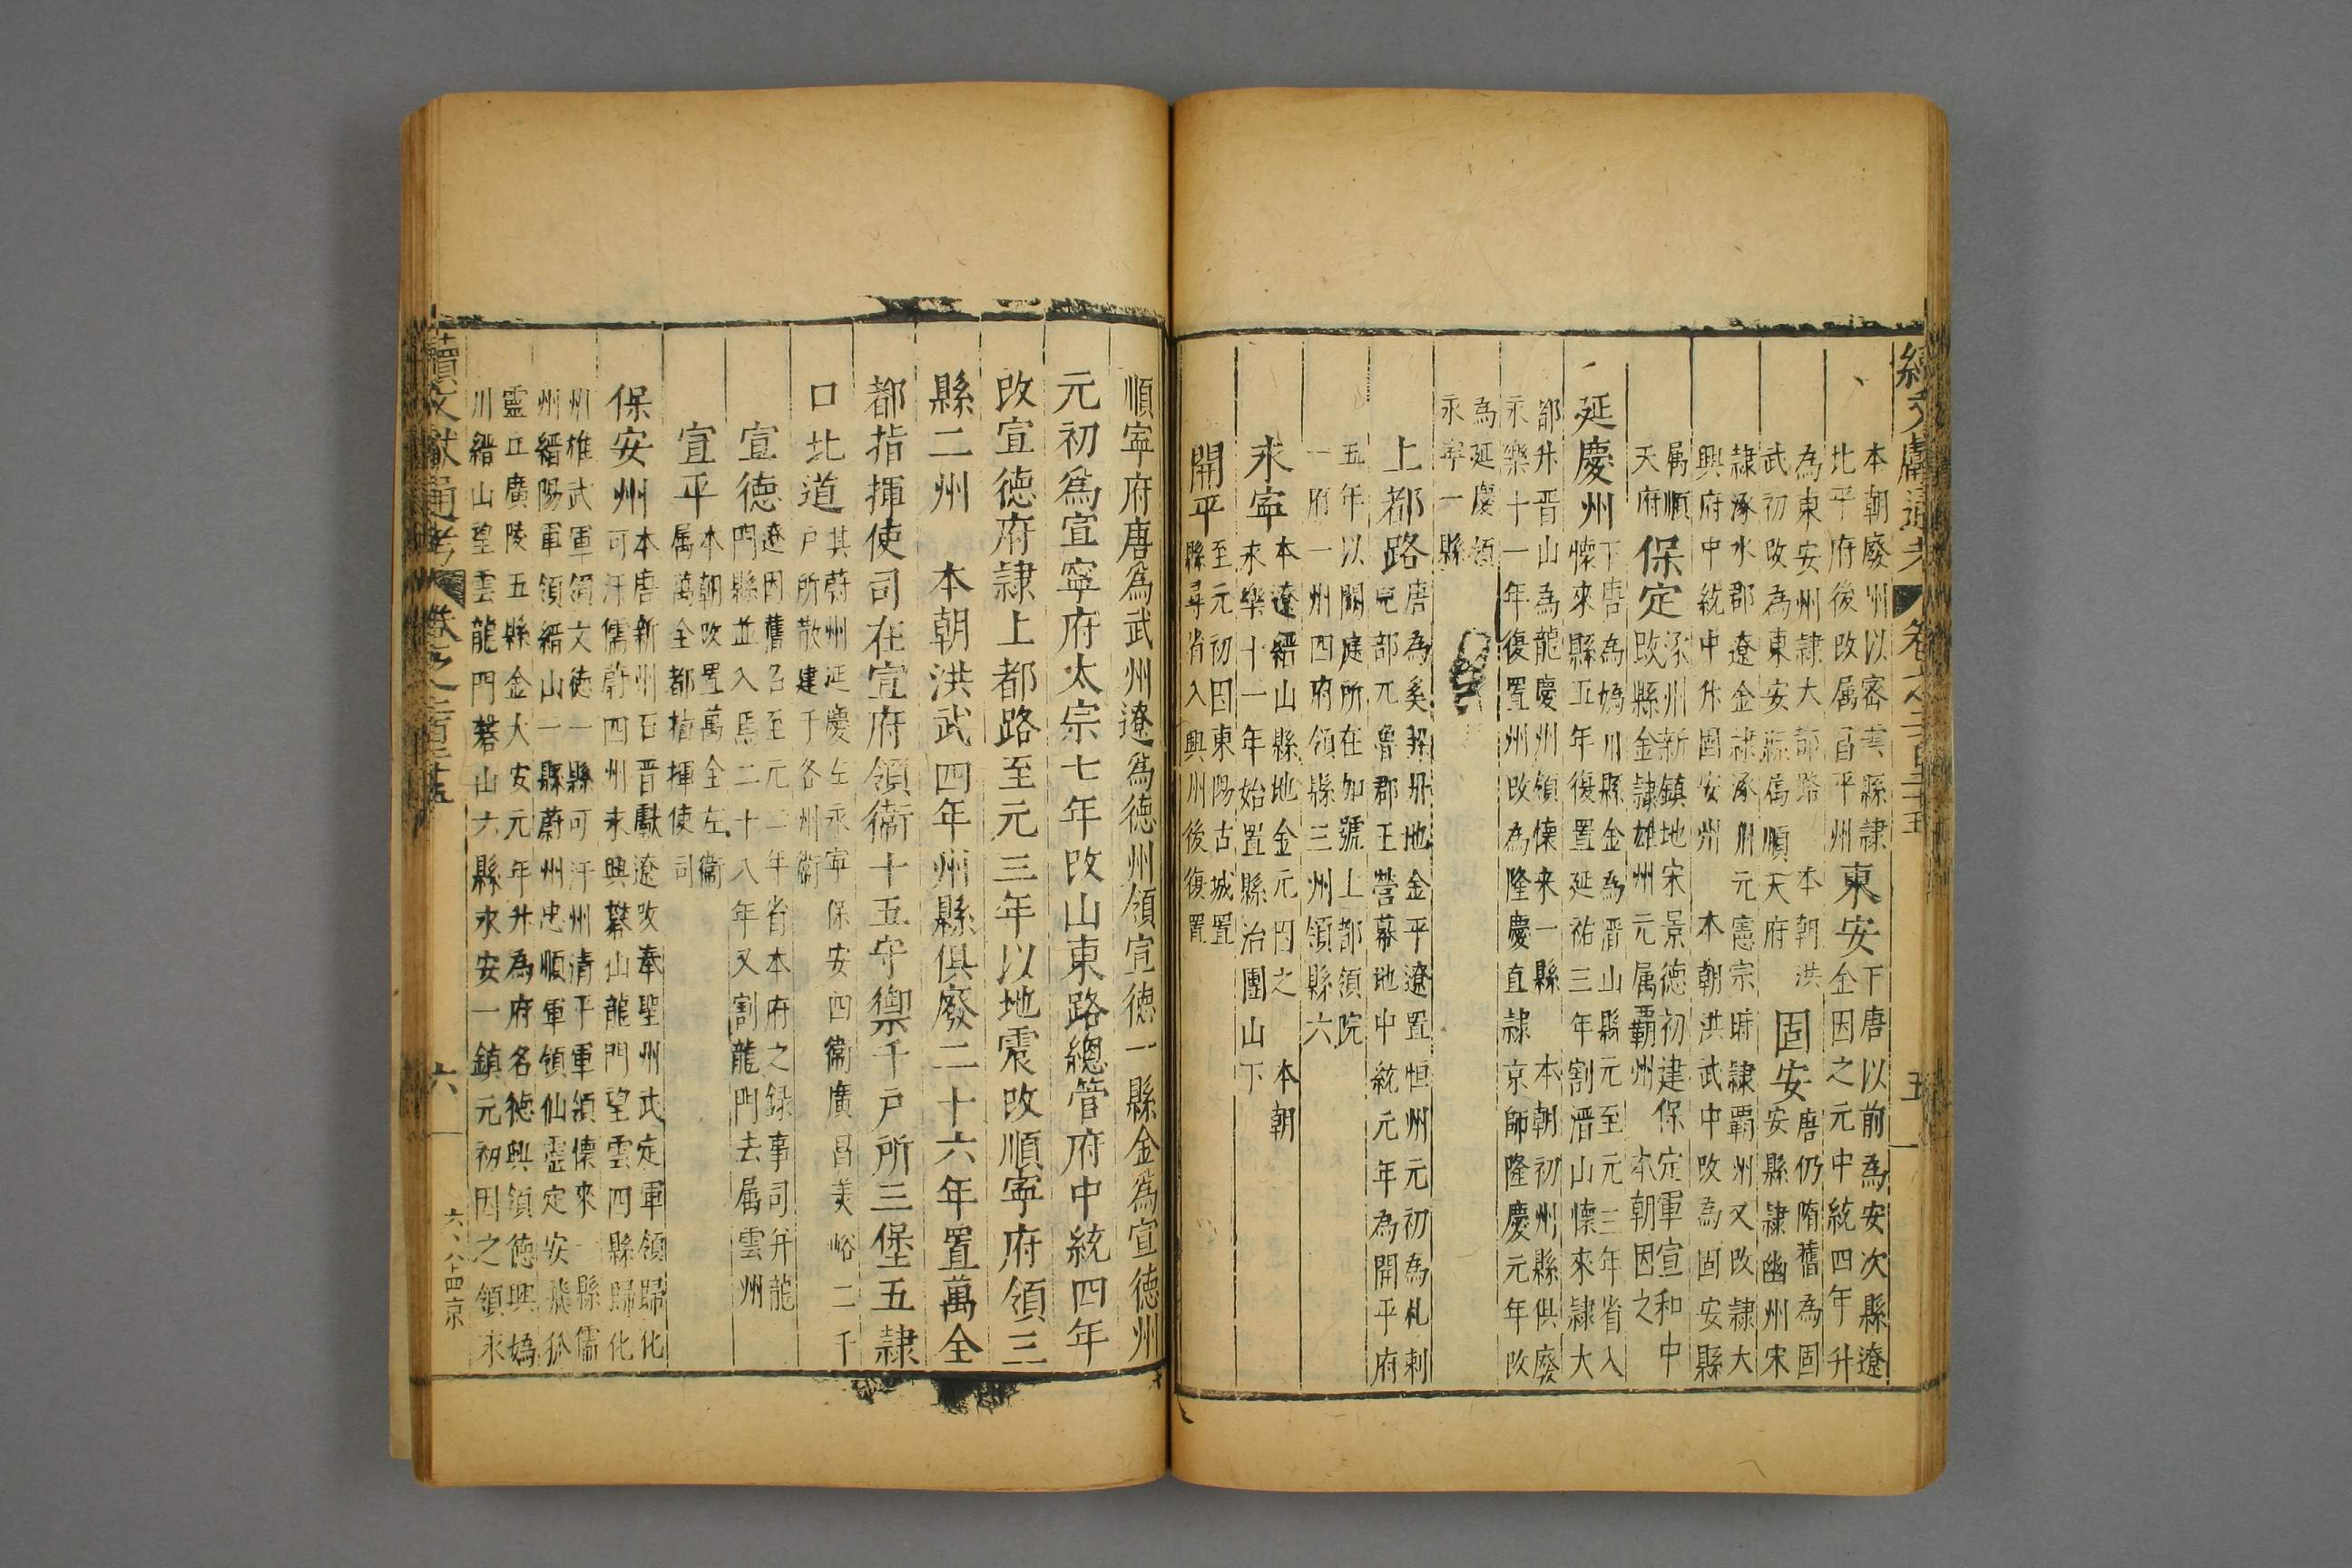 續文獻通考 卷之二百二十五 五
本朝廢州以密雲縣隸
北平府後改属昌平州
東安
下唐以前為安次縣遼
金因之元中統四年升
為東安州隷大都路 本朝洪
武初改為東安縣属順天府
固安
唐仍隋舊為固
安縣隷幽州宋
隷涿水郡遼金隷涿州元憲宗時隷霸州又改隷大
興府中統中升固安州 本朝洪武中改為固安縣
属順
天府
保定
涿州新鎮地宋景德初建保定軍宣和中
改縣金隷雄州元属霸州 本朝因之
延慶州
下唐為媯川縣金為縉山縣元至元三年省入
懷來縣五年復置延祐三年割縉山懷來隷大
都升晋山為龍慶州領懷來一縣 本朝初州縣俱廢
永樂十一年復置州改為隆慶直隷京師隆慶元年改
為延慶領
永寧一縣
上都路
唐為奚契丹地金平遼置恒州元初為札剌
兒部兀魯郡王營幕地中統元年為開平府
五年以闕庭所在加號上都領院
一府一州四府領縣三州領縣六
永寧
本遼縉山縣地金元因之 本朝
永樂十一年始置縣治團山下
開平
至元初因東陽古城置
縣尋省入興州後復置
順寧府唐為武州遼為德州領宣德一縣金為宣德州
元初為宣寧府太宗七年改山東路總管府中統四年
改宣德府隷上都路至元三年以地震改順寧府領三
縣二州 本朝洪武四年州縣俱廢二十六年置萬全
都指揮使司在宣府領衞十五守禦千戶所三堡五隷
口北道
其蔚州延慶左永寧保安四衞廣昌美峪二千
戶所散建于各州衞
宣德
遼因舊名至元二年省本府之録事司并龍
門縣並入焉二十八年又割龍門去属雲州
宣平
本朝改置萬全左衞
属萬全都指揮使司
保安州
本唐新州石晋獻遼改奉聖州武定軍領歸化
可汗儒蔚四州永興礬山龍門望雲四縣歸化
州雄武軍領文德一縣可汗州清平軍領懷來一縣儒
州縉陽軍領縉山一縣蔚州忠順軍領仙靈定安飛狐
靈丘廣陵五縣金大安元年升為府名德興領德興媯
川縉山望雲龍門礬山六縣永安一鎮元初因之領永
續文獻通考 卷之二百二十五 六